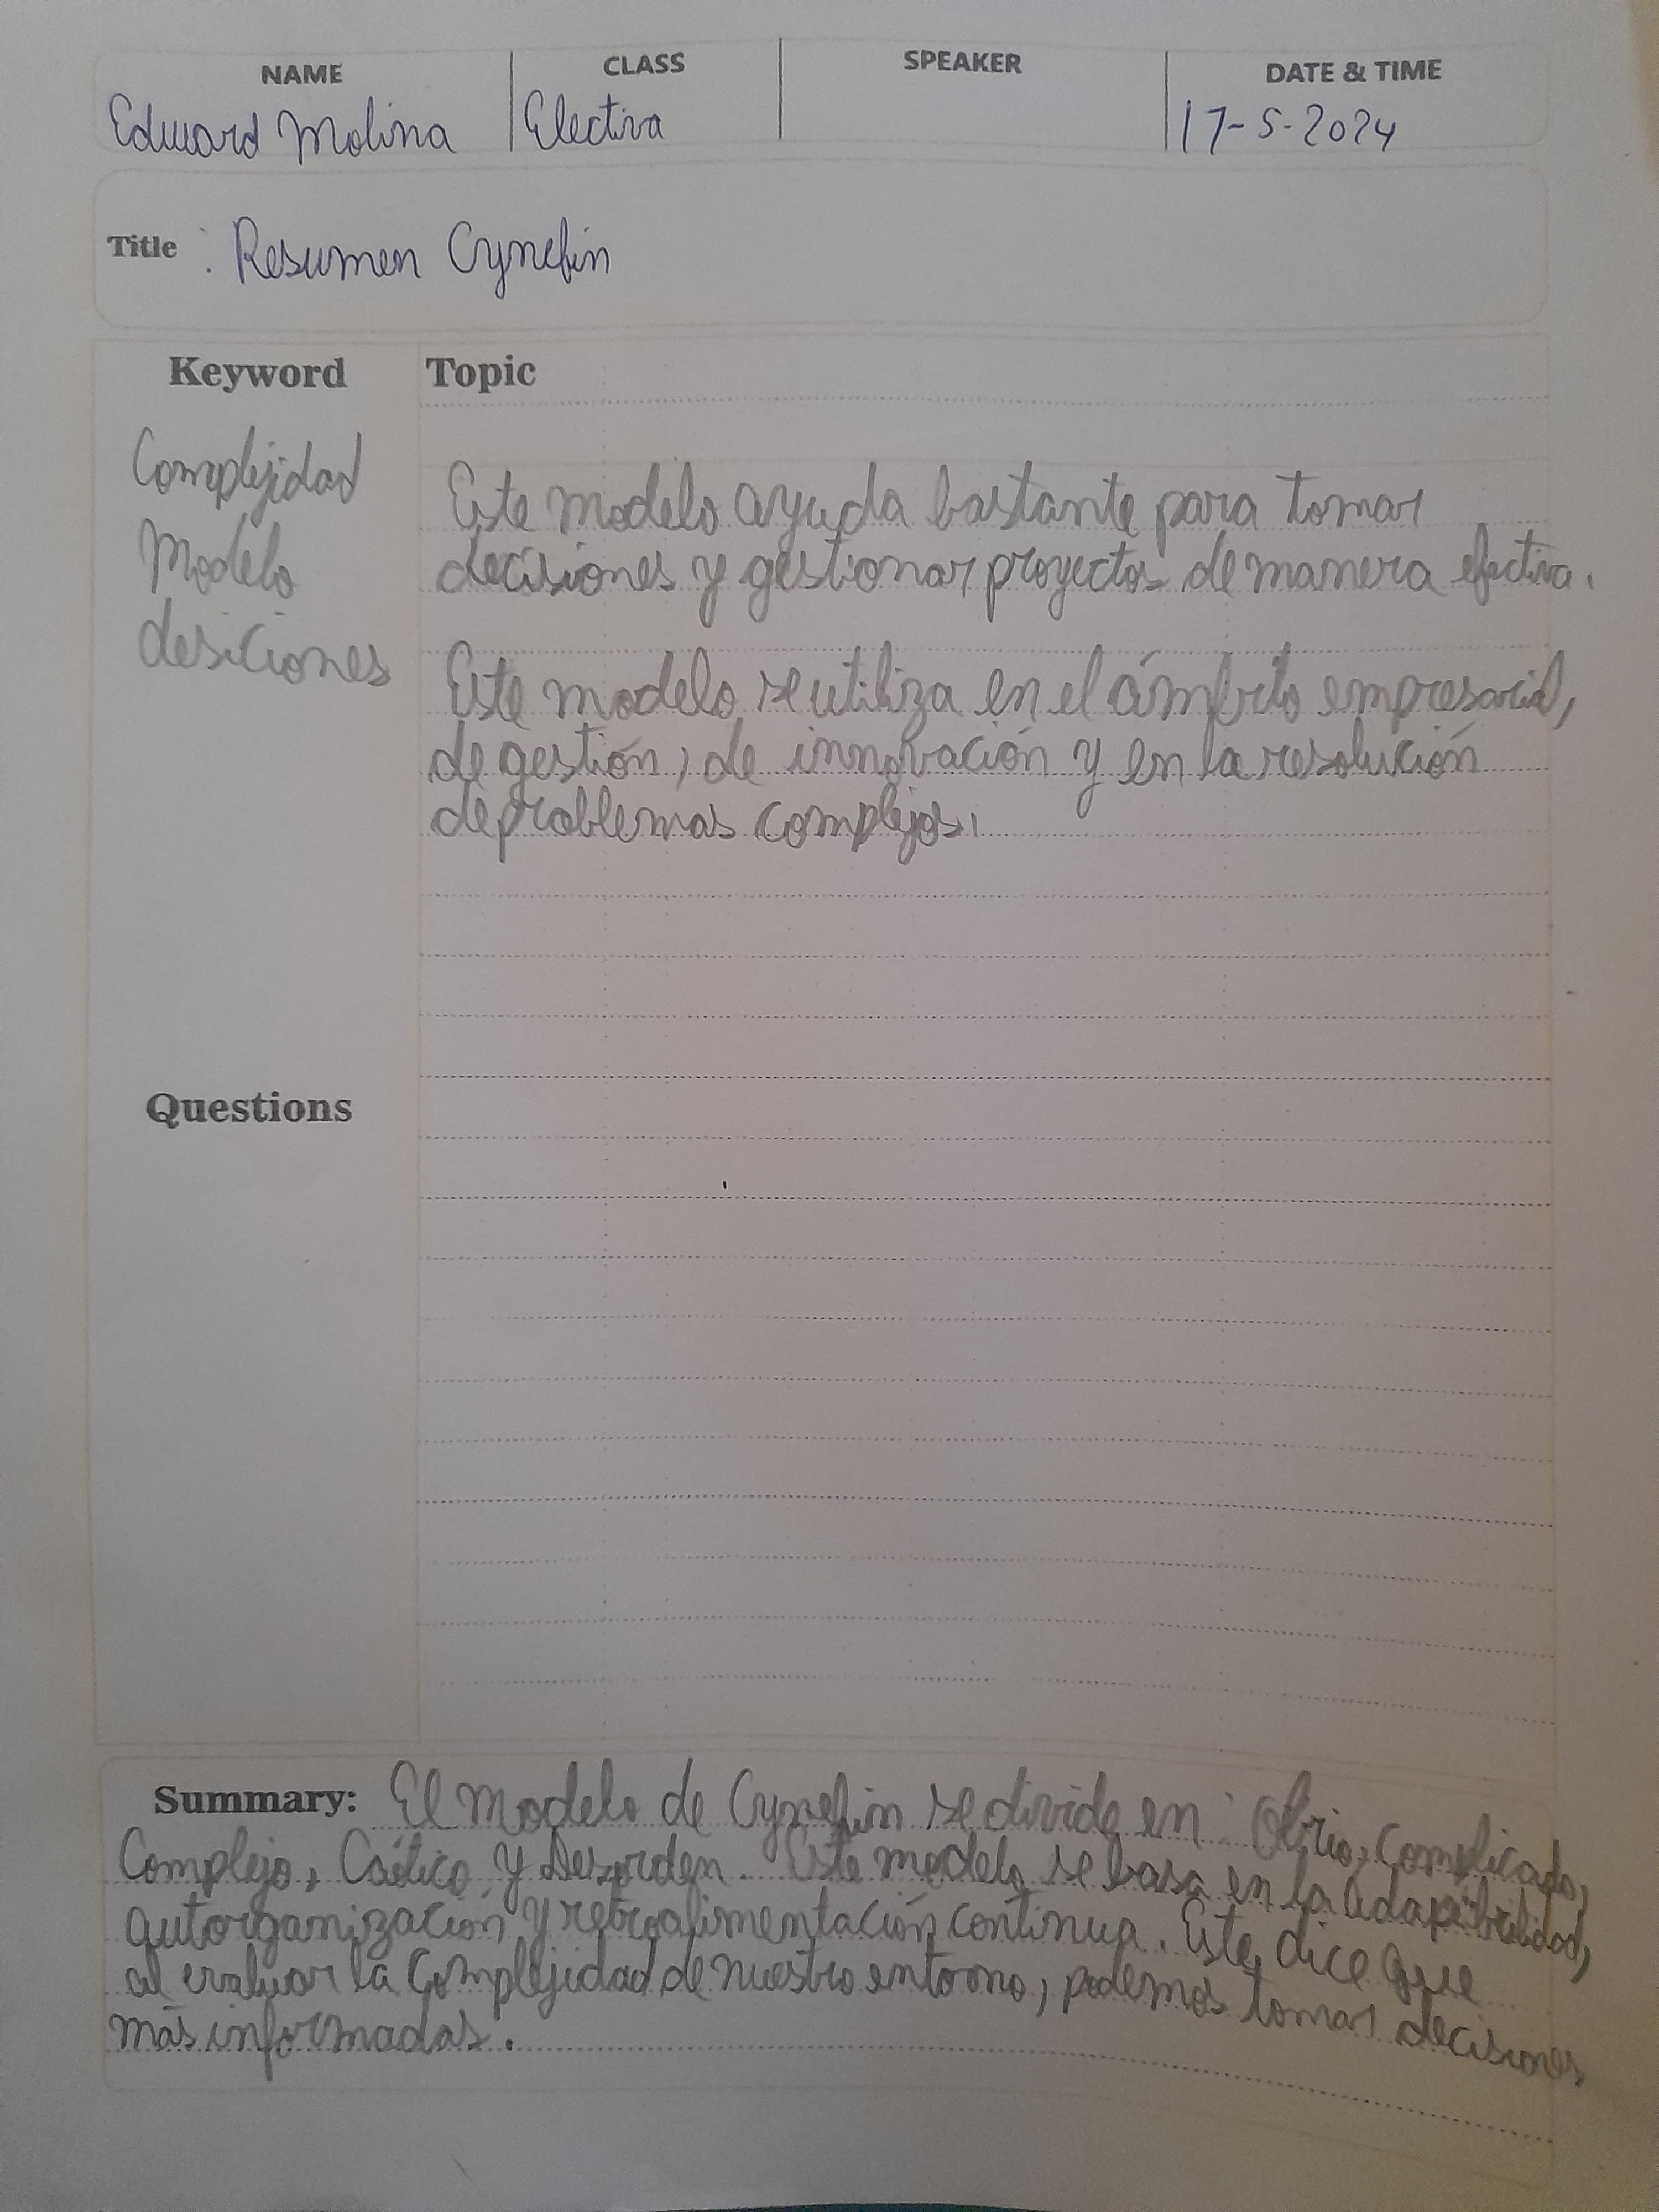 NAME CLASS SPEAKER DATE & TIME
Edward Molina Electiva 17-5-2024
Title : Resumen Cynefin
Keyword Topic
Complejidad
Modelo
desiciones
Este modelo ayuda bastante para tomar
decisiones y gestionar proyectos de manera efectiva.
Este modelo se utiliza en el ámbito empresarial,
de gestión, de innovación y en la resolución
de problemas complejos.
Questions
Summary: El Modelo de Cynefin se divide en : Obvio, Complicado,
Complejo, Caótico y Desorden. Este modelo se basa en la adaptibilidad,
autorganización y retroalimentación continua. Este dice que
al evaluar la Complejidad de nuestro entorno, podemos tomar decisiones
más informadas.